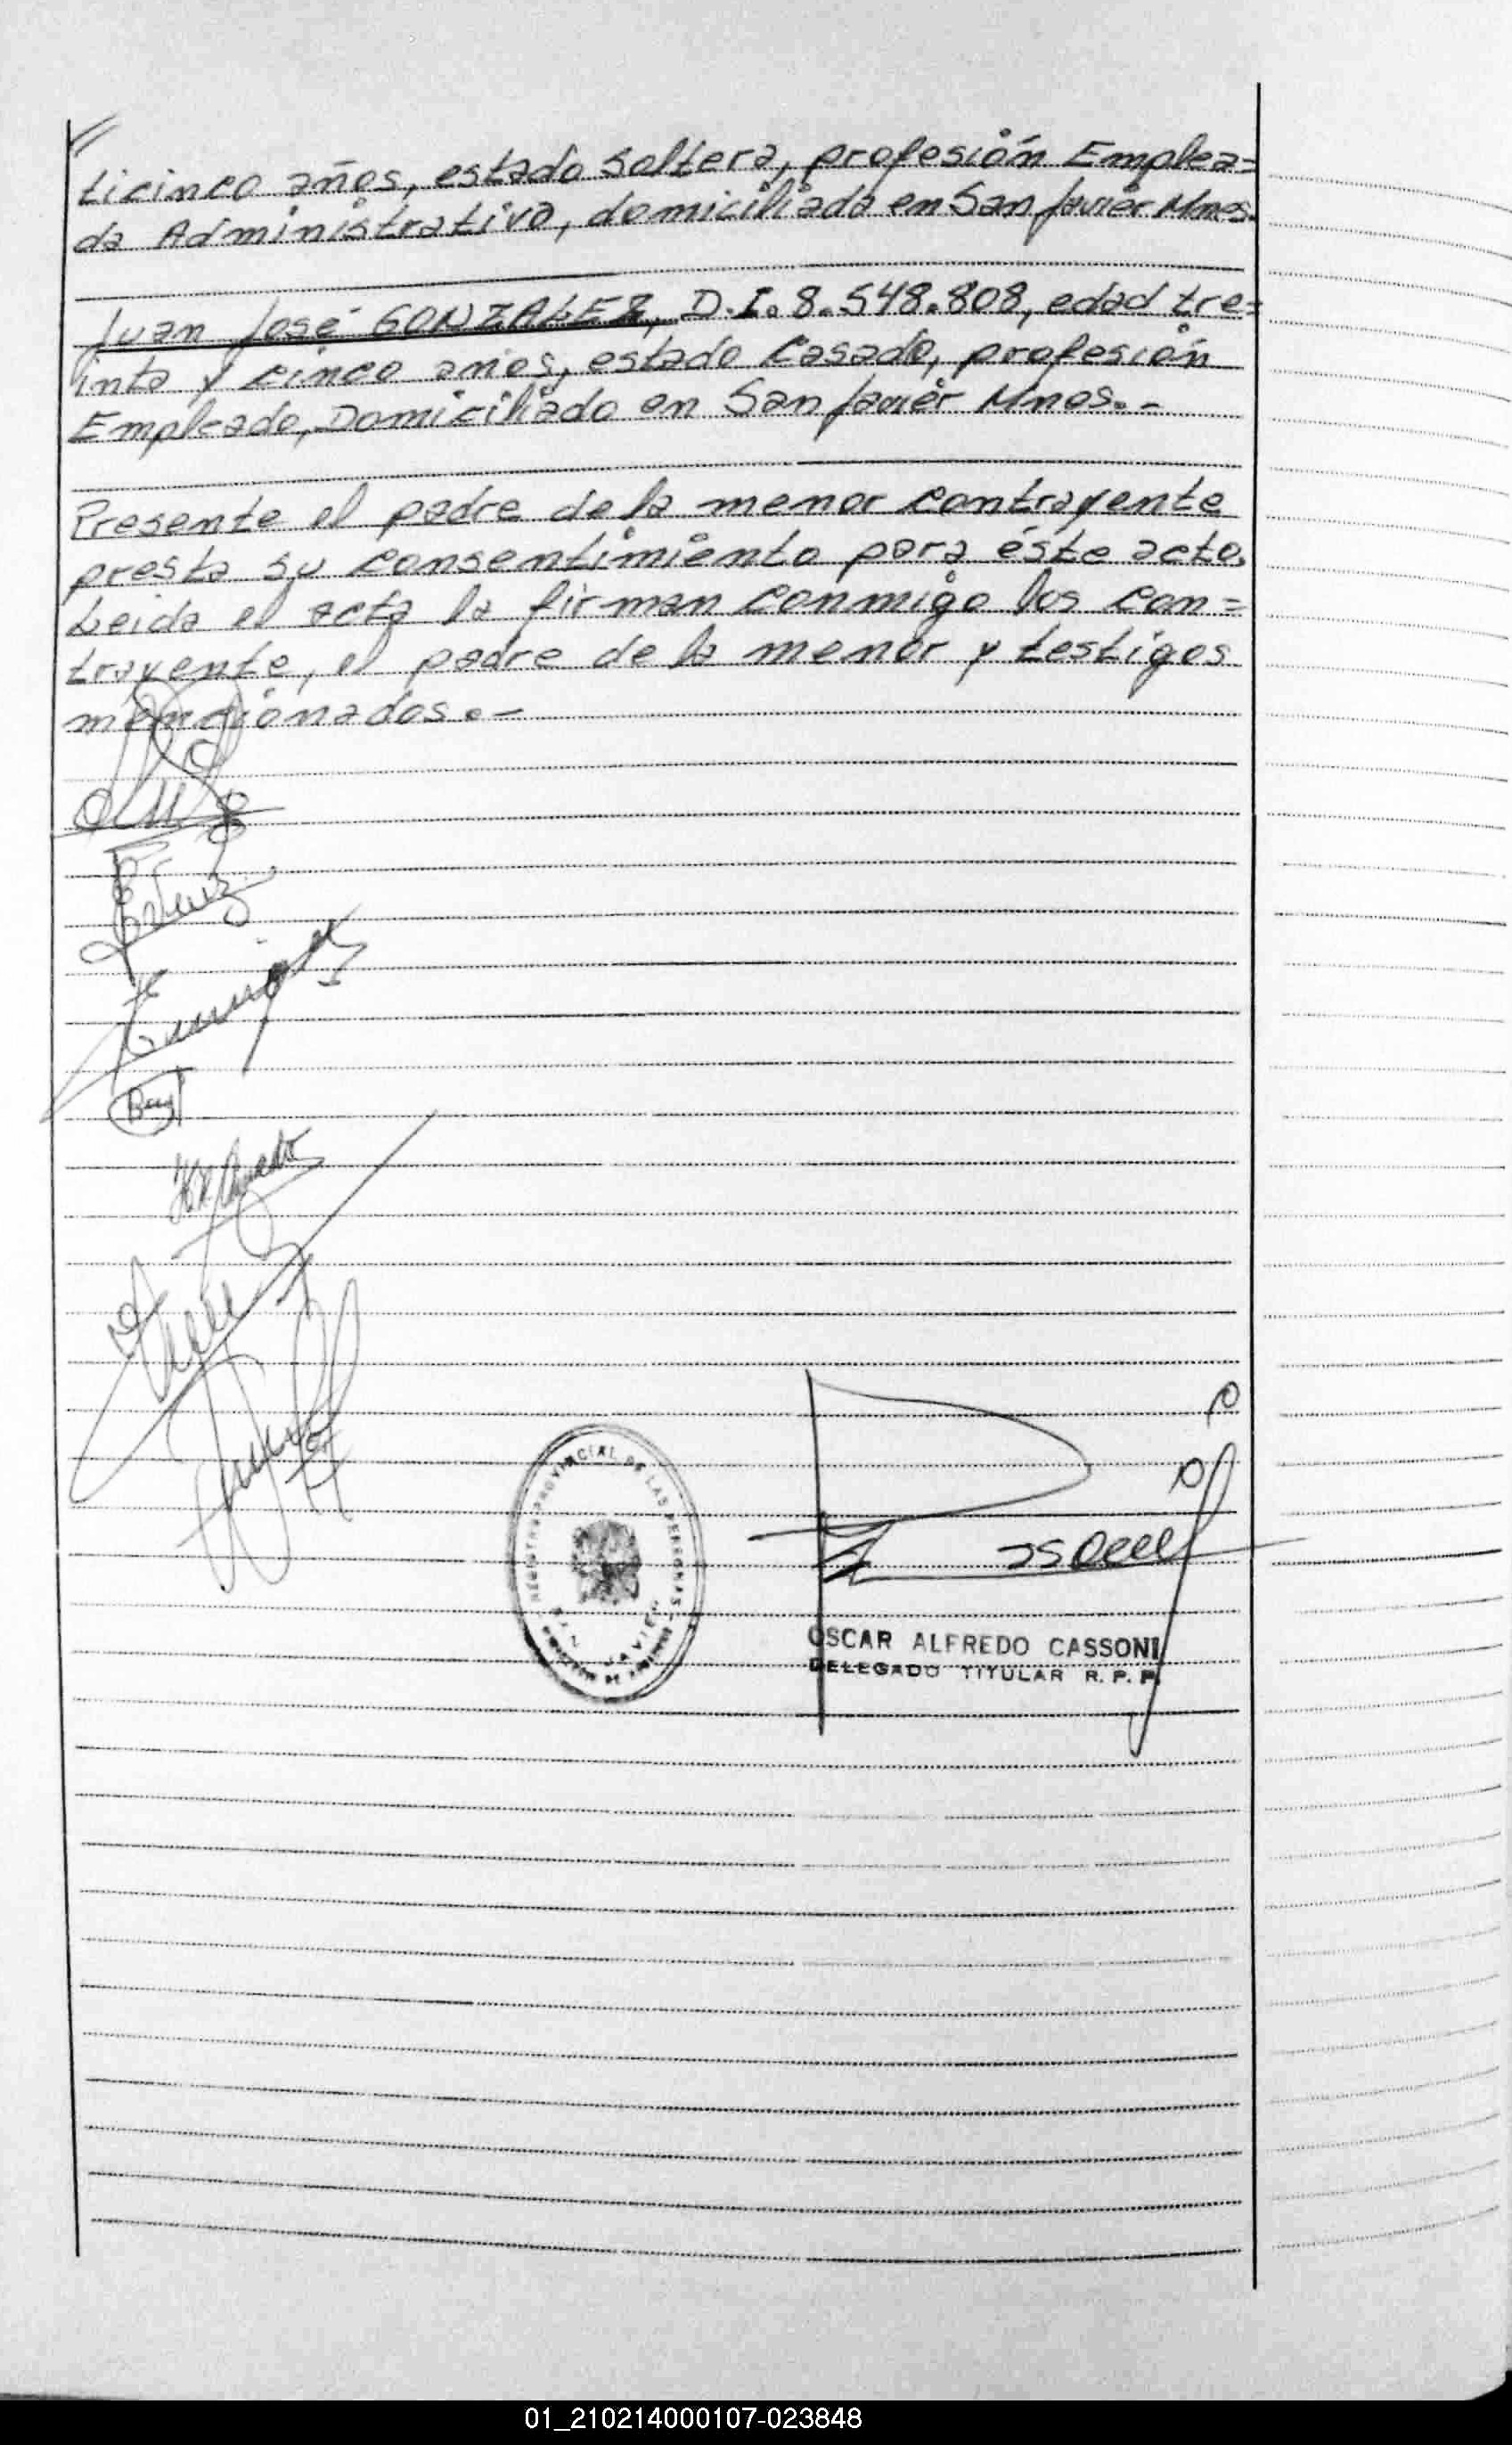 ticinco años, estado Soltera, profesión Emplea=
da Administrativa, domiciliada en San Javier Mnes.
Juan José GONZALEZ, D.I. 8.548.808, edad tre=
inta y cinco años, estado Casado, profesión
Empleado, Domiciliado en San Javier Mnes.-
Presente el padre de la menor contrayente
presta su consentimiento para éste acto.
Leida el acta la firman conmigo los con=
trayente, el padre de la menor y testigos
mencionados.-
REGISTRO PROVINCIAL DE LAS PERSONAS
SAN JAVIER
OSCAR ALFREDO CASSONI
DELEGADO TITULAR R. P. P.
01_210214000107-023848